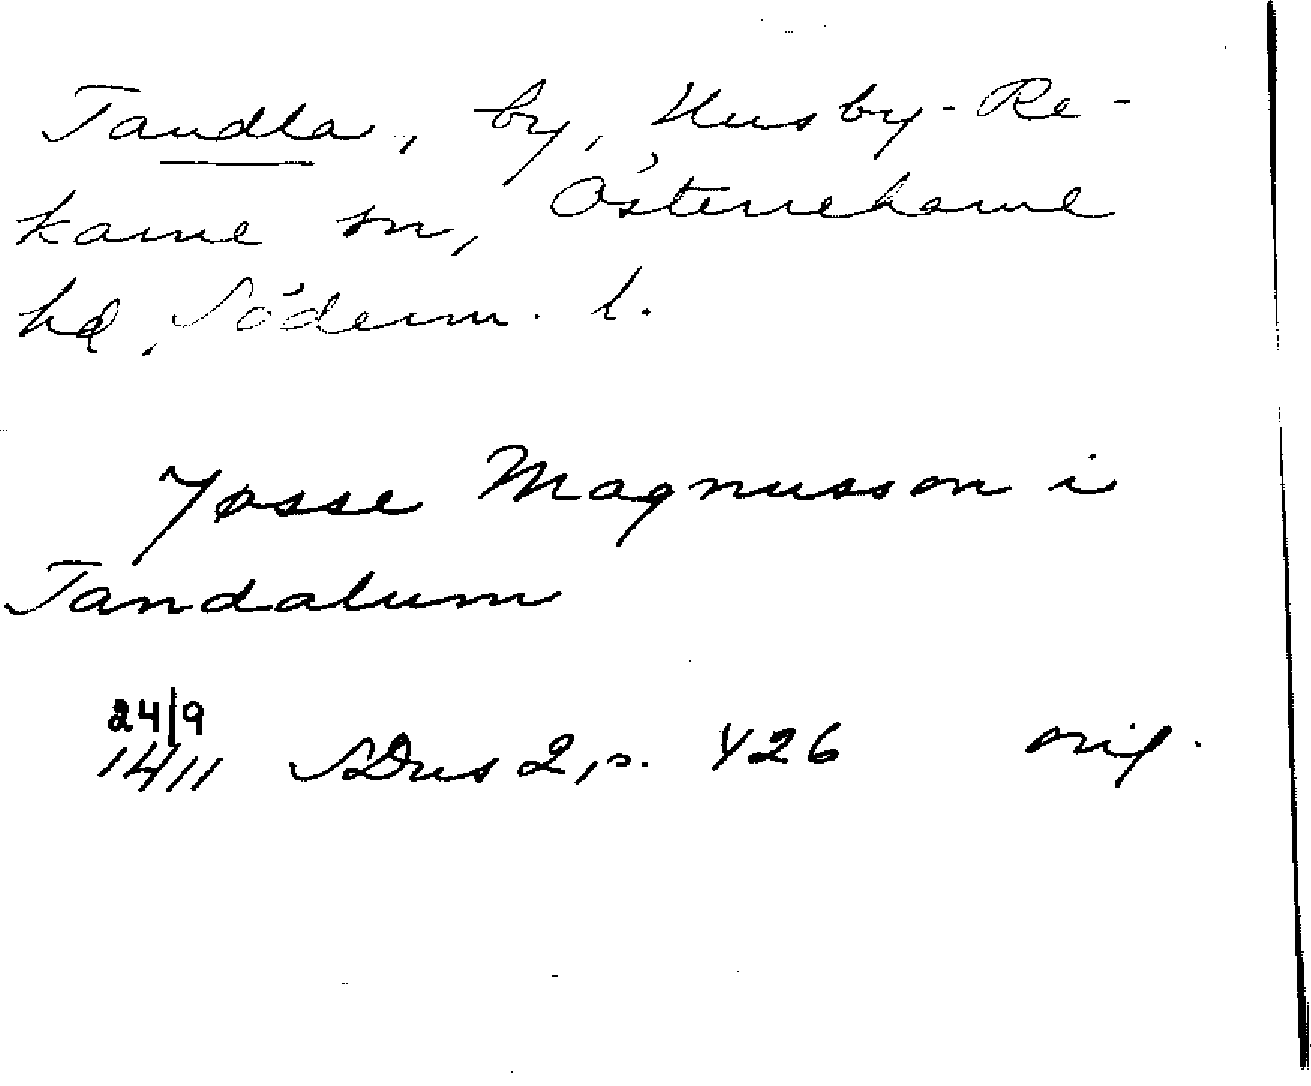 Tandla, by, Husby-Re-
karne sn, Österrekarne
hd, Söderm. l.
Jøsse Magnusson i
Tandalum
24/9
1411 SDns 2, s. 426 orig.